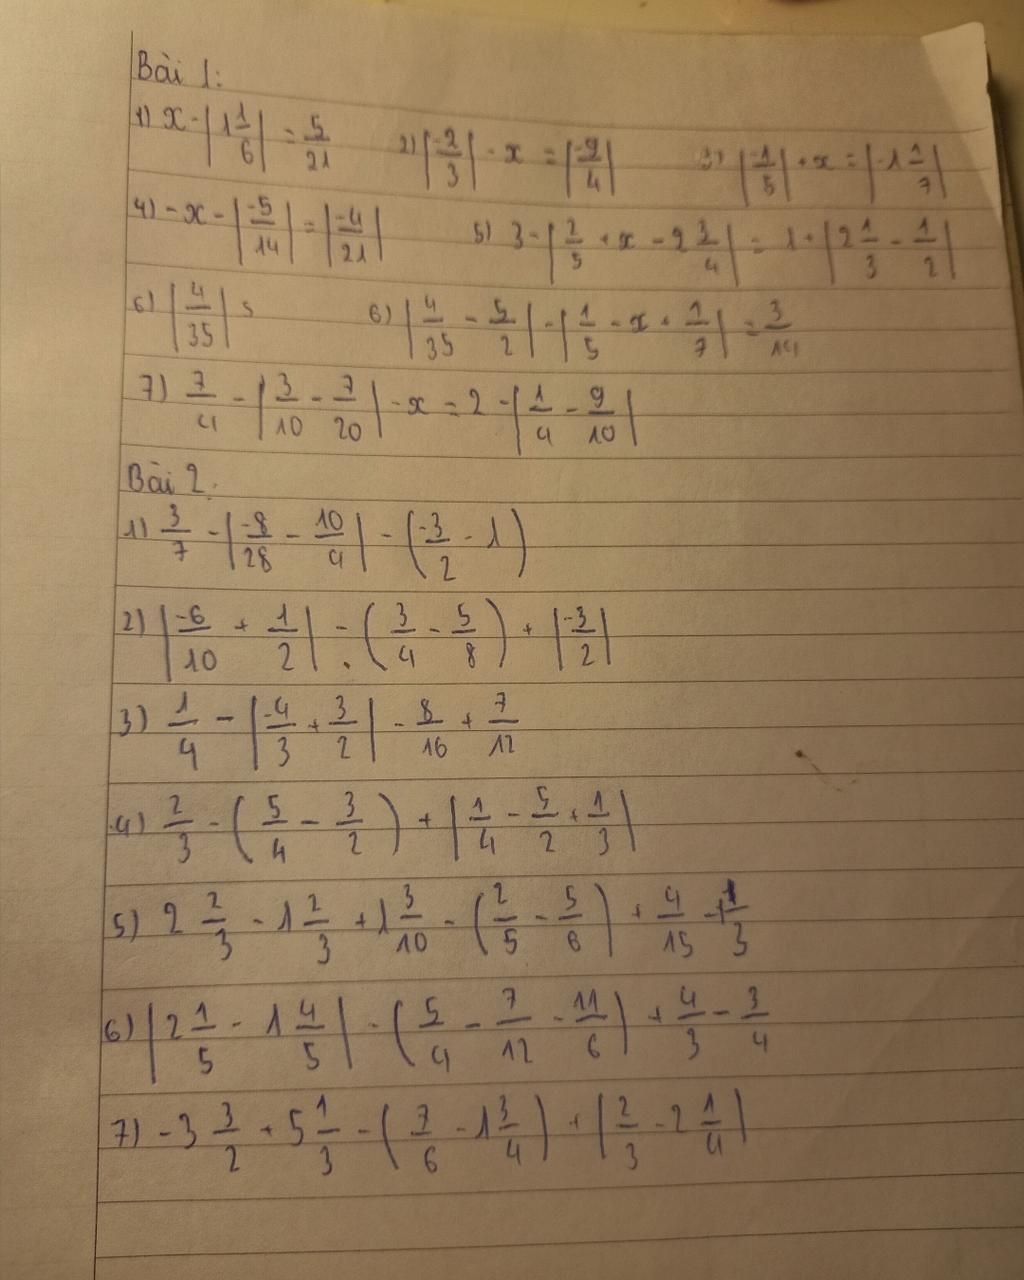 Bài 1:
1) x - |1 1/6| = 5/21 2) |-2/3| - x = |-9/4| 3) |-1/5| + x = |-1 1/7|
4) -x - |-5/14| = |-4/21| 5) 3 - |2/5 + x - 2 3/4| = 1 + |2 1/3 - 1/2|
6) |4/35| 5 6) |4/35 - 5/2| - |1/5 - x + 1/7| = 3/14
7) 7/4 - |3/10 - 7/20| - x = 2 - |1/4 - 9/10|
Bài 2.
1) 3/7 - |-8/28 - 10/4| - (-3/2 - 1)
2) |-6/10 + 1/2| - (3/4 - 5/8) + |-3/2|
3) 1/4 - |-4/3 + 3/2| - 8/16 + 7/12
4) 2/3 - (5/4 - 3/2) + |1/4 - 5/2 + 1/3|
5) 2 2/3 - 1 2/3 + 1 3/10 - (2/5 - 5/6) + 4/15 + 1/3
6) |2 1/5 - 1 4/5| - (5/4 - 7/12 - 11/6) + 4/3 - 3/4
7) -3 3/2 + 5 1/3 - (7/6 - 1 3/4) + |2/3 - 2 1/4|